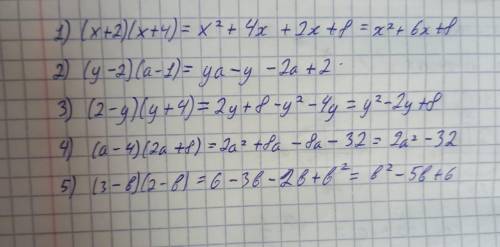 1) (x+2)(x+4) = x² + 4x + 2x + 8 = x² + 6x + 8
2) (y-2)(a-1) = ya - y - 2a + 2
3) (2-y)(y+4) = 2y + 8 - y² - 4y = y² - 2y + 8
4) (a-4)(2a+8) = 2a² + 8a - 8a - 32 = 2a² - 32
5) (3-в)(2-в) = 6 - 3в - 2в + в² = в² - 5в + 6